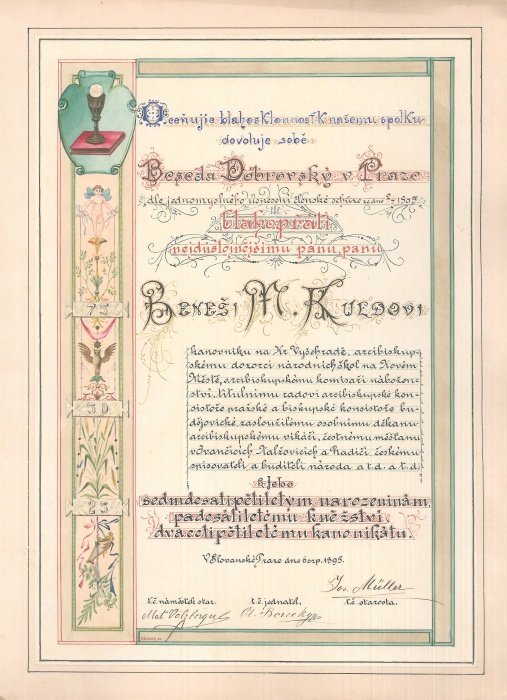 Oceňujíc blahosklonnosť k našemu spolku
dovoluje sobě
Beseda Dobrovský v Praze
dle jednomyslného usnesení členské schůze z 1895
blahopřáti
nejdůstojnějšímu pánu, panu
Beneši M. Kuldovi
kanovníku na Kr. Vyšehradě, arcibiskup-
skému dozorci národních škol na Novém
Městě, arcibiskupskému komisaři nábožen-
ství, titulnímu radovi arcibiskupské kon-
sistoře pražské a biskupské konsistoře bu-
dějovické, zasloužilému osobnímu děkanu
arcibiskupskému vikáři, čestnému měšťanu
v Ivančicích, Nalžovicích a Radíči, českému
spisovateli a buditeli národa a t.d. a t.d.
k Jeho
sedmdesátipětiletým narozeninám,
padesátiletému kněžství
dvacetipětiletému kanonikátu.
75
50
25
V Slovanské Praze dne 6 srp. 1895.
Jos. Müller
t. č. náměstek star.
t. č. jednatel,
t. č. starosta.